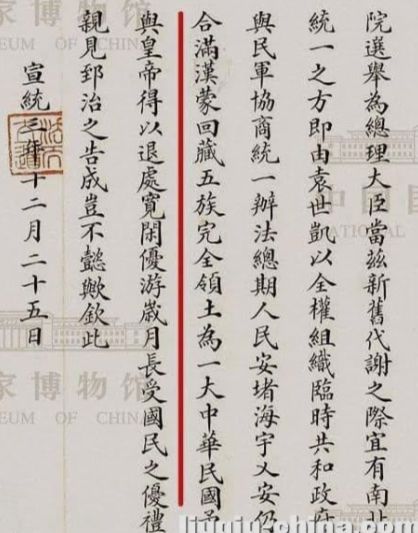 院選舉為總理大臣當茲新舊代謝之際宜有南北
統一之方即由袁世凱以全權組織臨時共和政府
與民軍協商統一辦法總期人民安堵海宇乂安仍
合滿漢蒙回藏五族完全領土為一大中華民國予
與皇帝得以退處寬閒優游歲月長受國民之優禮
親見郅治之告成豈不懿歟欽此
宣統三年十二月二十五日
家博物館
EUM OF CHINA
中國國
NATIONAL
家博物館
EUM OF CHINA